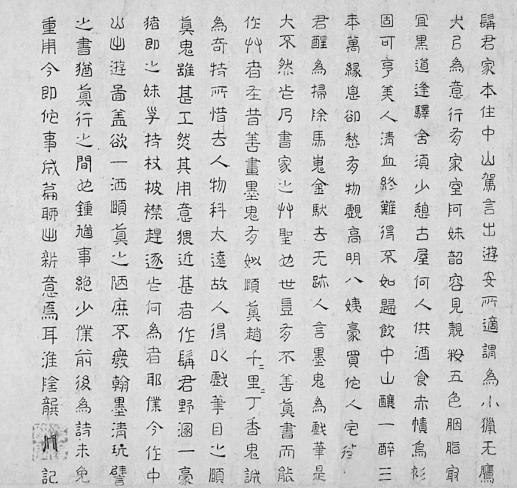 髯君家本住中山駕言出遊安所適謂為小獵無鷹
犬以為意行有家室阿妹韶容見靚妝五色胭脂最
宜黑道逢驛舍須少憩古屋何人供酒食赤幘烏衫
固可亨美人清血終難得不如歸飲中山釀一醉三
年萬緣息卻愁有物覷高明八姨豪買他人宅待
君醒為掃除馬嵬金馱去無跡人言墨鬼為戲筆是
大不然此乃書家之艸聖也世豈有不善真書而能
作艸者在昔善畫墨鬼有姒頤真趙千里〻丁香鬼誠
為奇特所惜去人物科太遠故人得以戲筆目之頤
真鬼雖甚工然其用意猥近甚者作髯君野溷一豪
豬即之妹子持杖披襟趕逐此何為者耶僕今作中
山出遊圖蓋欲一洒頤真之陋庶不廢翰墨清玩譬
之書猶真行之間也鍾馗事絕少僕前後為詩未免
重用今即他事成篇聊出新意焉耳淮陰龔開記